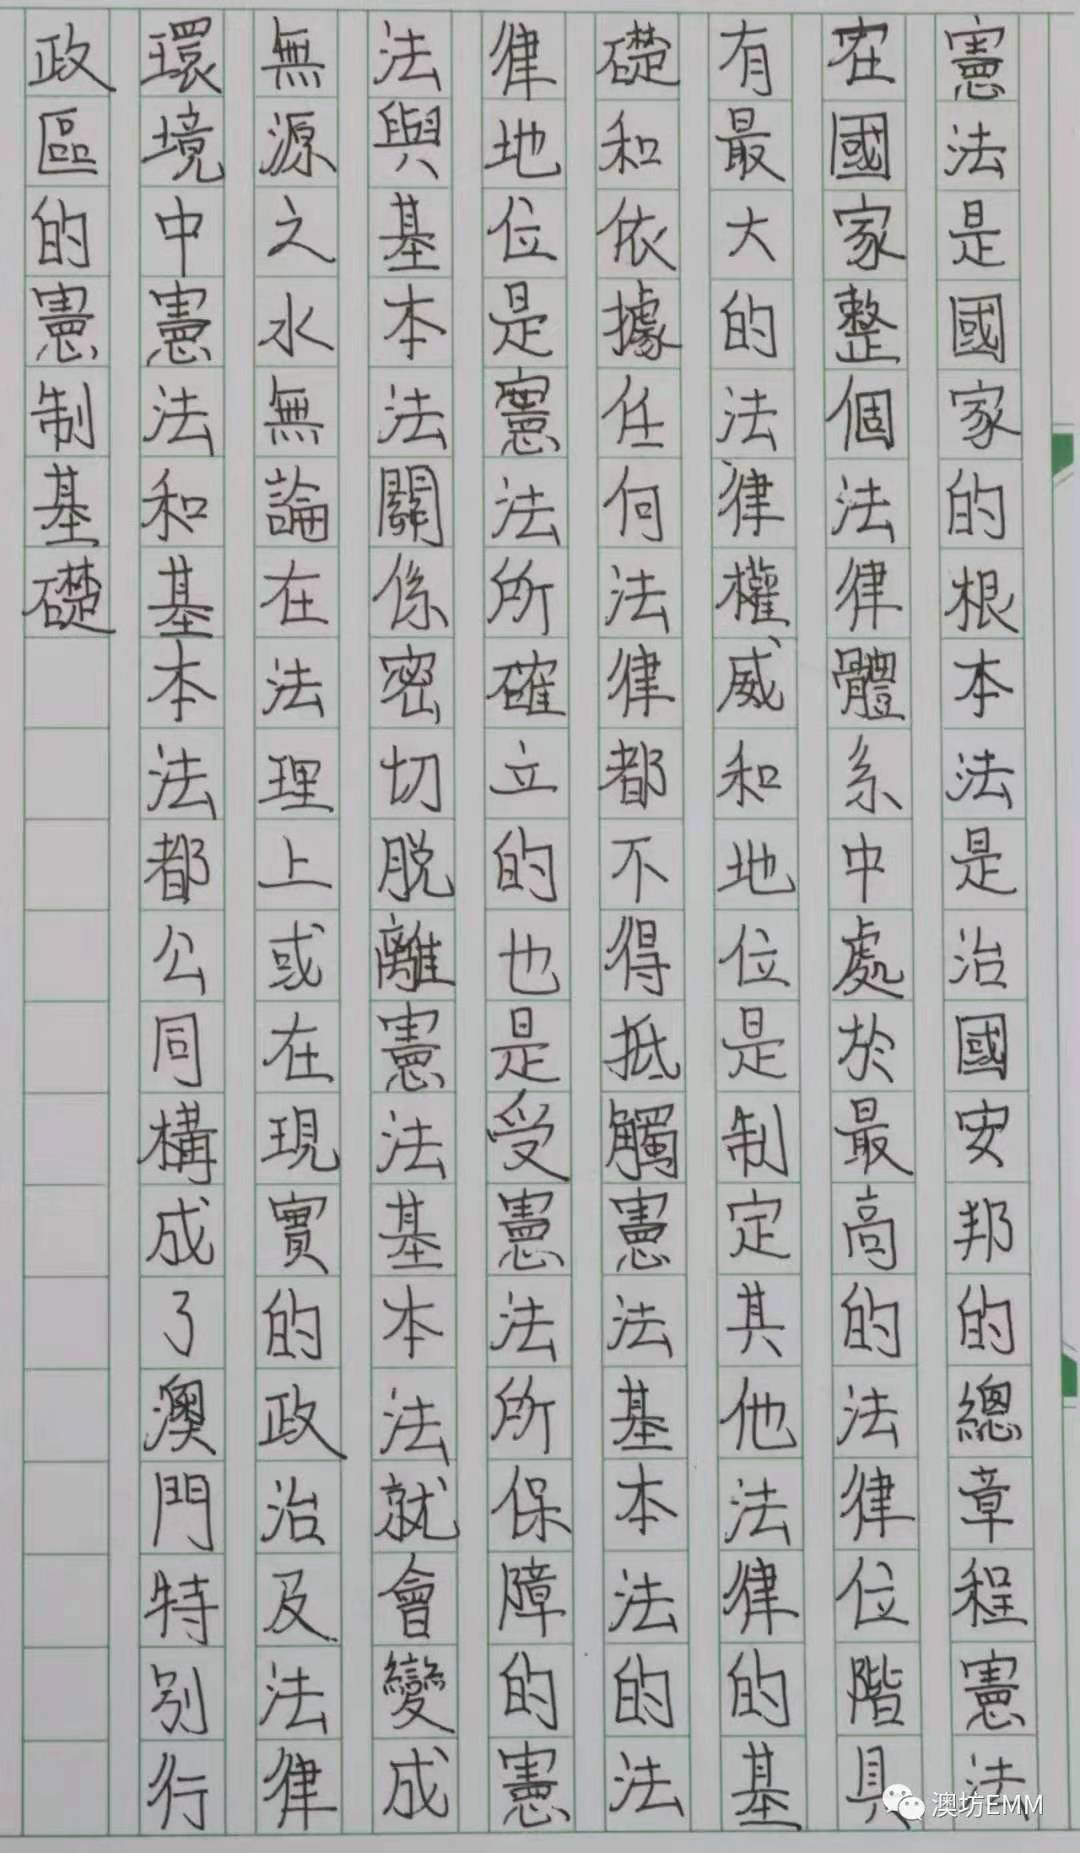 憲法是國家的根本法是治國安邦的總章程憲法
在國家整個法律體系中處於最高的法律位階具
有最大的法律權威和地位是制定其他法律的基
礎和依據任何法律都不得抵觸憲法基本法的法
律地位是憲法所確立的也是受憲法所保障的憲
法與基本法關係密切脱離憲法基本法就會變成
無源之水無論在法理上或在現實的政治及法律
環境中憲法和基本法都公同構成了澳門特別行
政區的憲制基礎
澳坊EMM